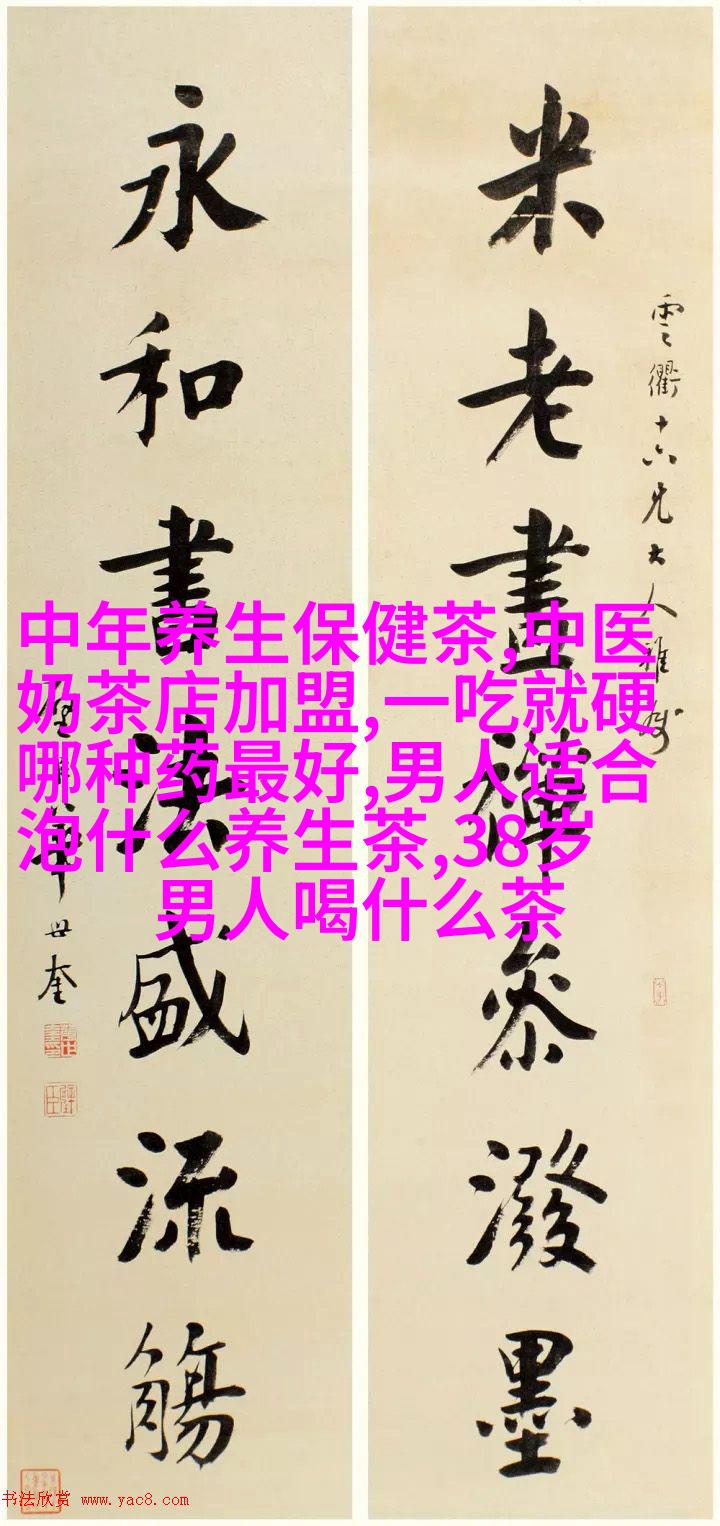 米老畫禪參潑墨
雲衢十六兄大人雅屬
永和書法盛流觴
華世奎
中年养生保健茶,中医
奶茶店加盟,一吃就硬
哪种药最好,男人适合
泡什么养生茶,38岁
男人喝什么茶
书法欣赏 www.yac8.com